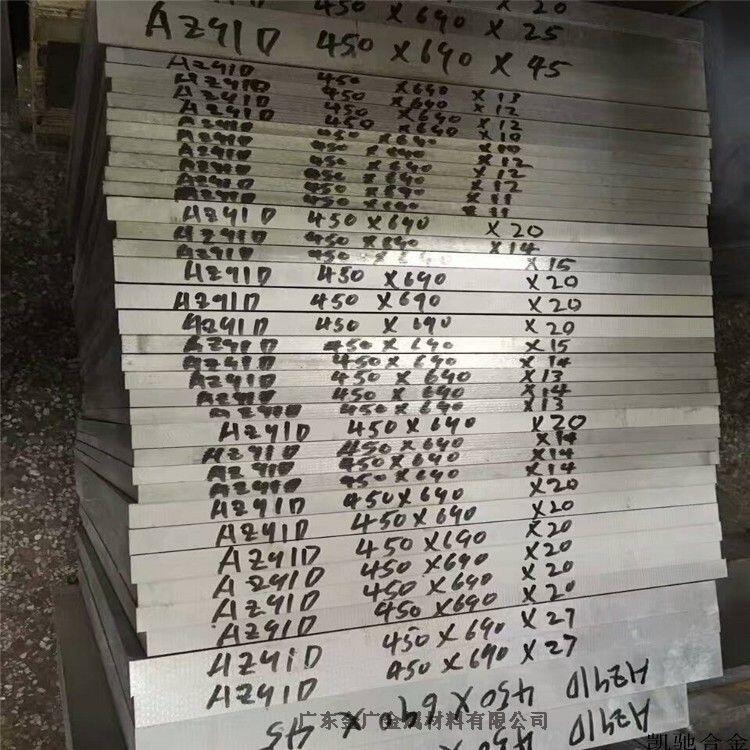 450 X 690 X 20
450 X 690 X 25
AZ91D 450 X 690 X 45
AZ91D 450 X 690 X 13
AZ91D 450 X 690 X 12
AZ91D 450 X 690 X 12
AZ91D 450 X 690 X 10
AZ91D 450 X 690 X 10
AZ91D 450 X 690 X 12
AZ91D 450 X 690 X 12
AZ91D 450 X 690 X 12
AZ91D 450 X 690 X 11
AZ91D 450 X 690 X 11
AZ91D 450 X 690 X 20
AZ91D 450 X 690 X 14
AZ91D 450 X 690 X 15
AZ91D 450 X 690 X 20
AZ91D 450 X 690 X 20
AZ91D 450 X 690 X 20
AZ91D 450 X 690 X 15
AZ91D 450 X 690 X 14
AZ91D 450 X 690 X 13
AZ91D 450 X 690 X 14
AZ91D 450 X 690 X 13
AZ91D 450 X 690 X 20
AZ91D 450 X 690 X 14
AZ91D 450 X 690 X 14
AZ91D 450 X 690 X 14
AZ91D 450 X 690 X 20
AZ91D 450 X 690 X 20
AZ91D 450 X 690 X 20
AZ91D 450 X 690 X 20
AZ91D 450 X 690 X 20
AZ91D 450 X 690 X 20
AZ91D 450 X 690 X 27
AZ91D 450 X 690 X 27
AZ91D 450 X 690 X 45
AZ91D 450 X
广东金广金属材料有限公司
凯驰合金